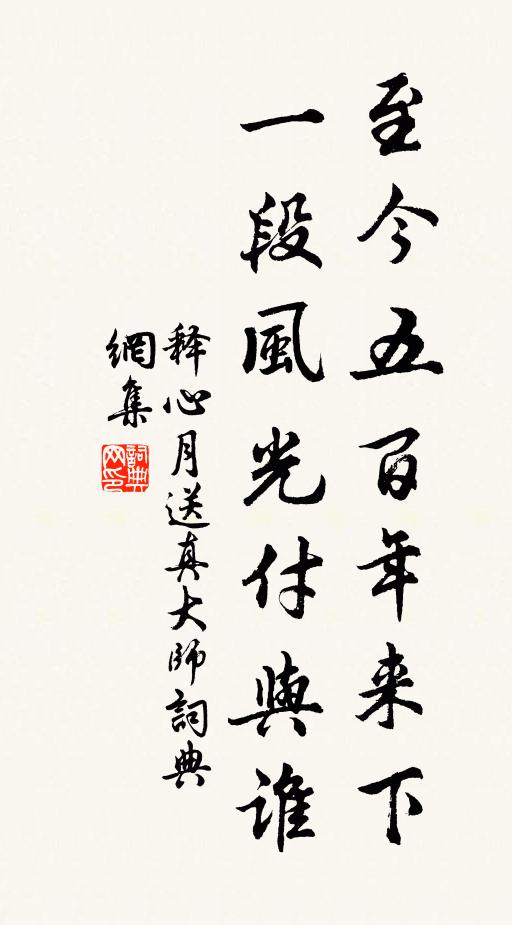 至今五百年来下
一段風光付與谁
释心月送真大師詞典
網集
詞典
网印